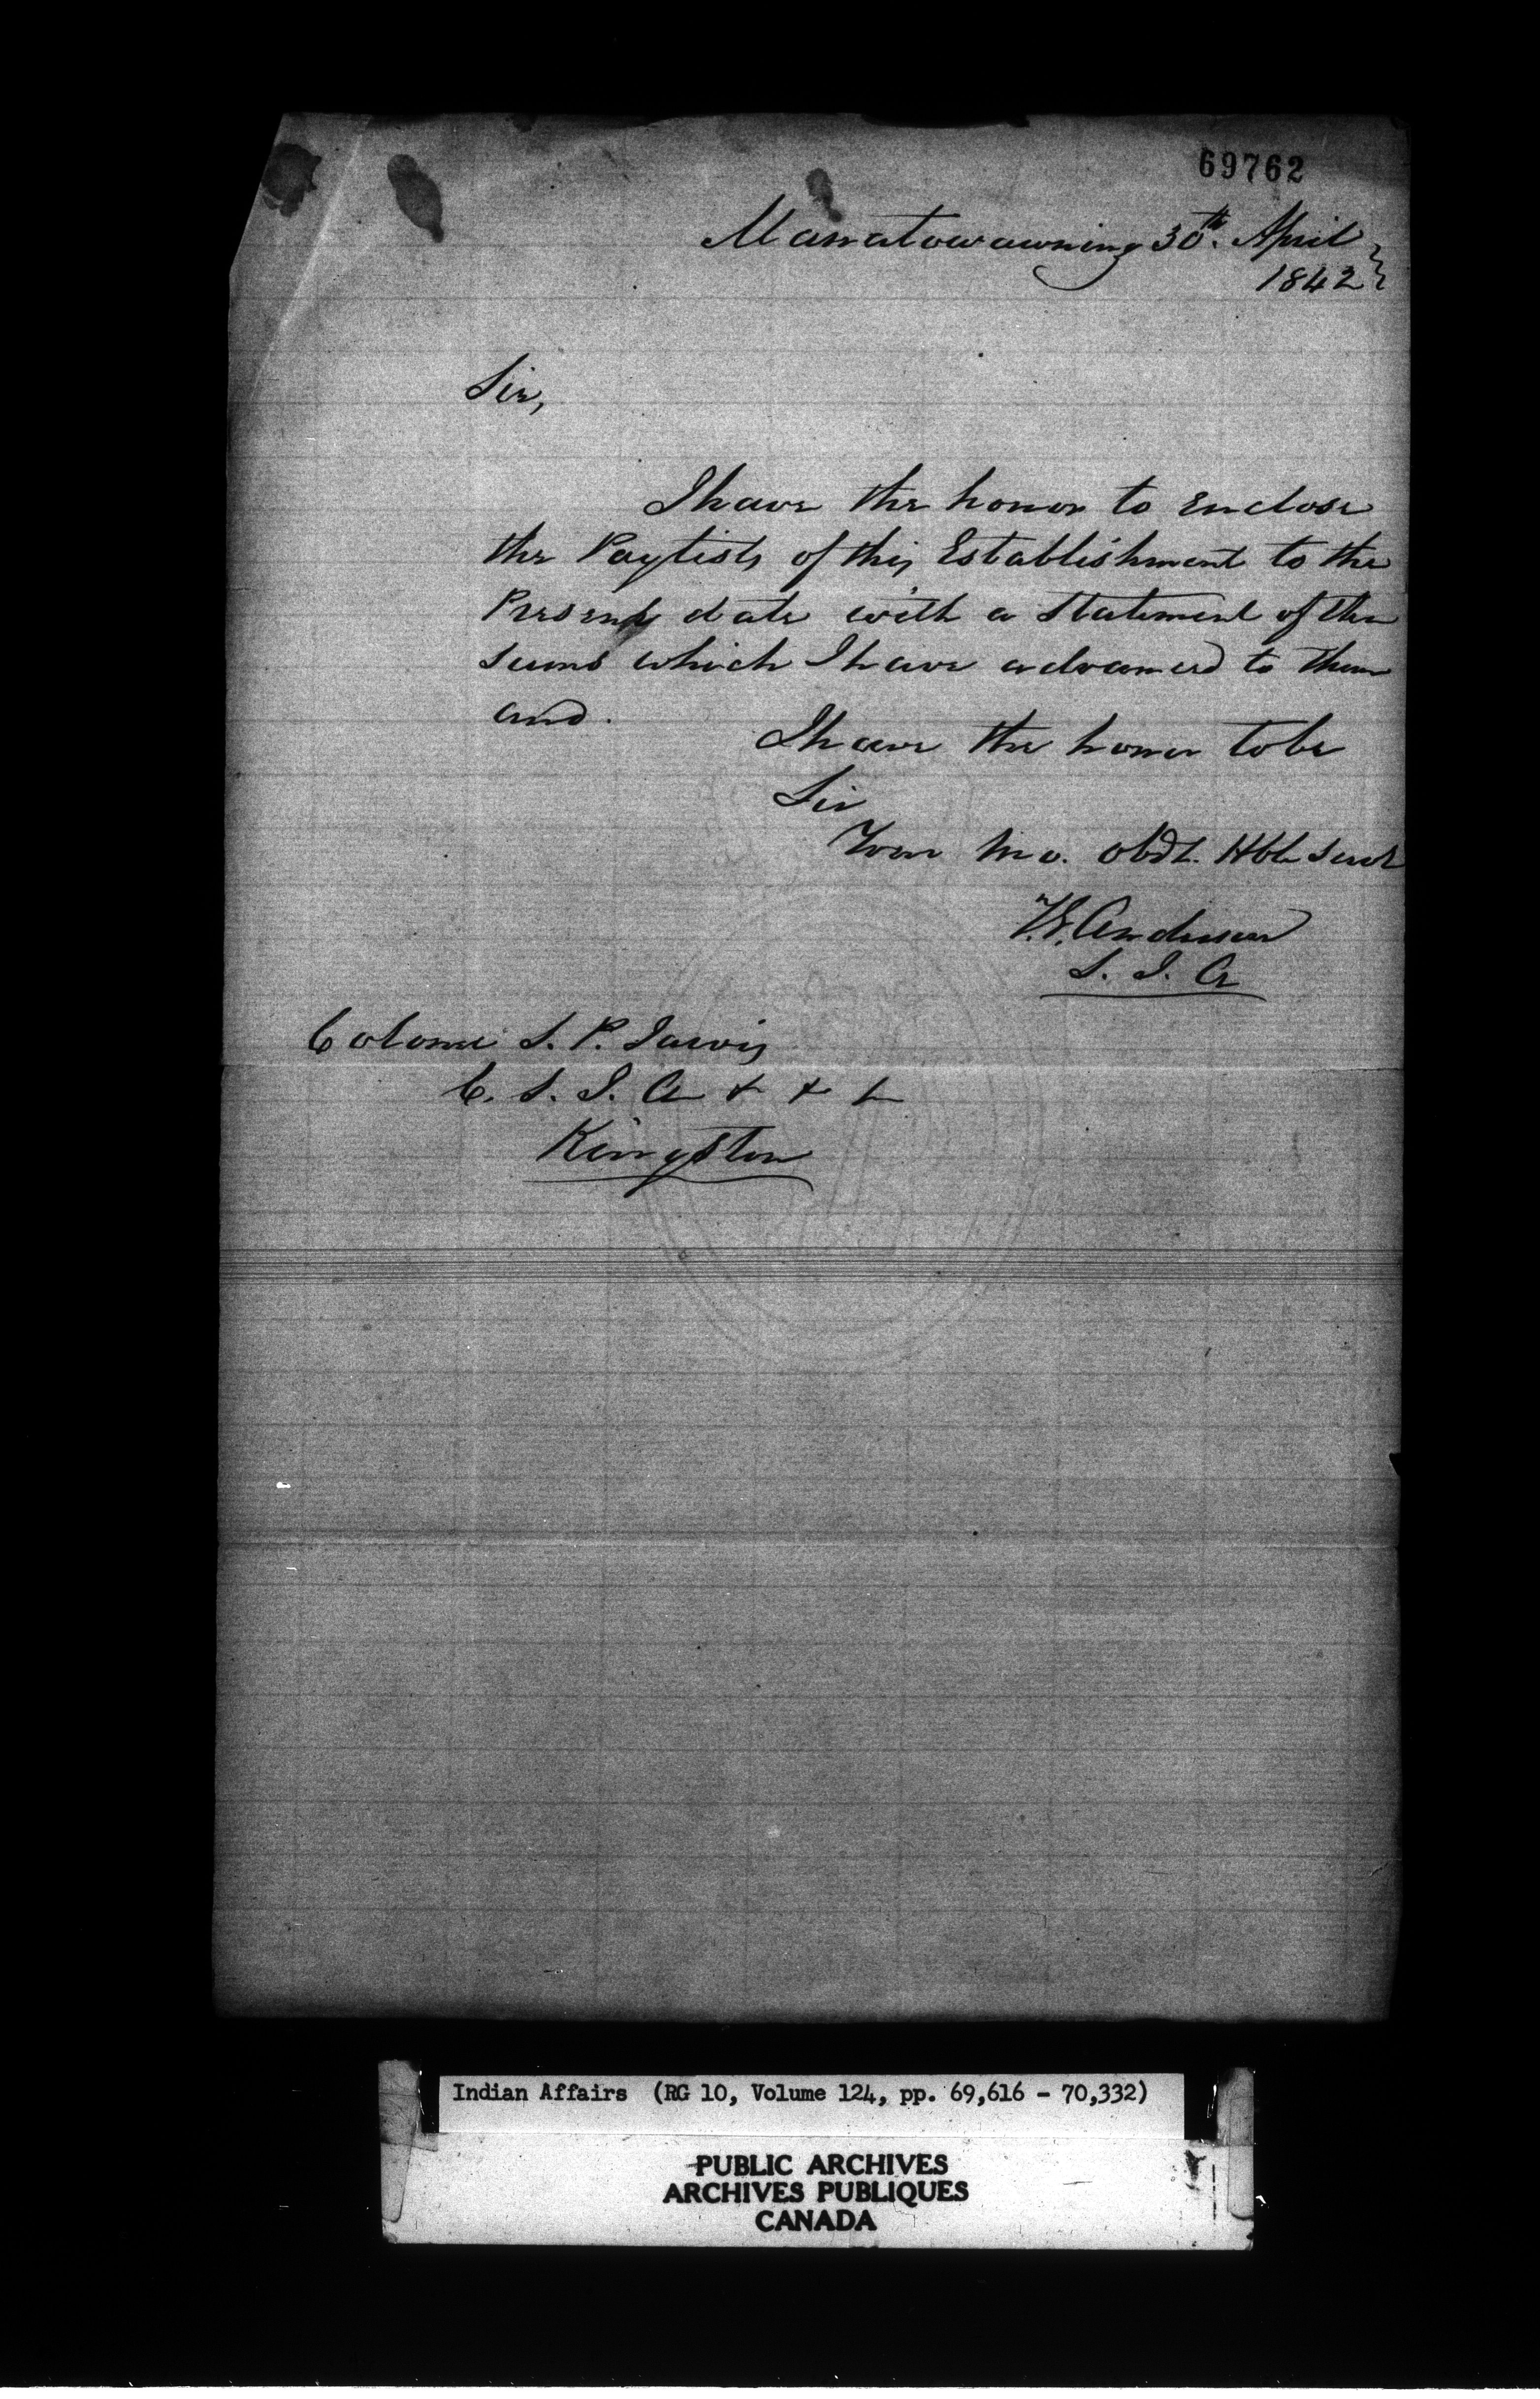 69762
Manatowawning 30th. April
1842
Sir,
I have the honor to enclose
the Paylists of this Establishment to the
Present date with a Statement of the
sums which I have advanced to them
and.
I have the honor to be
Sir
Your Mo. Obdt. Hble Servt
T.G. Anderson
S. I. A
Colonel S. P. Jarvis
C. S. I. A & & &
Kingston
Indian Affairs (RG 10, Volume 124, pp. 69,616 - 70,332)
PUBLIC ARCHIVES
ARCHIVES PUBLIQUES
CANADA